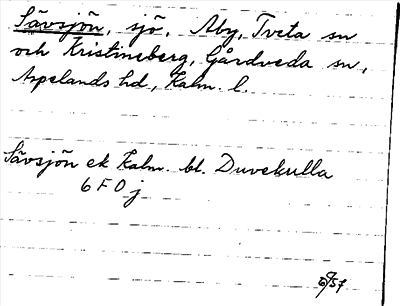 Sävsjön, sjö, Aby, Tveta sn
och Kristineberg, Gårdveda sn,
Aspelands hd, Kalm. l.
Sävsjön ek Kalm. bl. Duvekulla
6 F 0 j